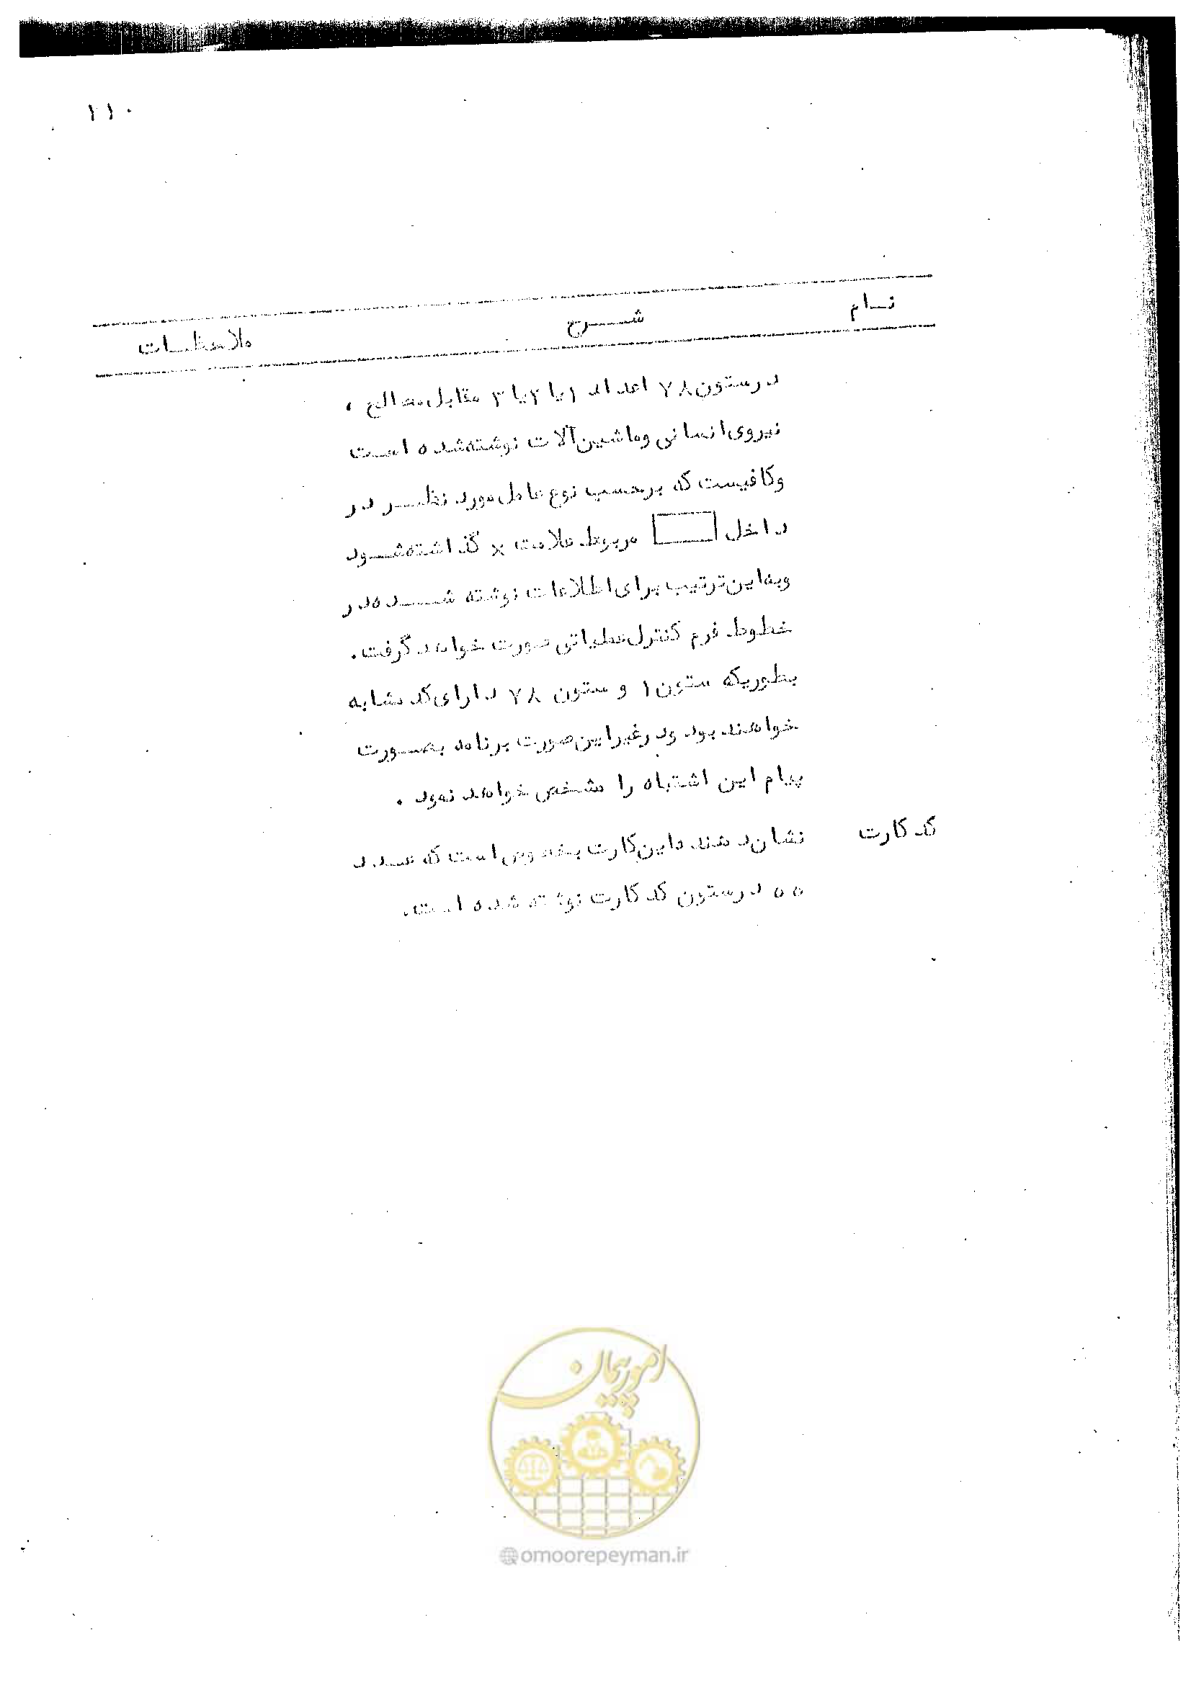 ۱۱۰
نام شرح ملاحظات
درستون ۷۸ اعداد ۱ یا ۲ یا ۳ مقابل مصالح ،
نیروی انسانی وماشین آلات نوشته شده است
وکافیست که برحسب نوع عامل مورد نظر در
داخل مربوط علامت × گذاشته شود
وبه این ترتیب برای اطلاعات نوشته شده در
خطوط فرم کنترل عملیاتی صورت خواهد گرفت .
بطوریکه ستون ۱ و ستون ۷۸ دارای کد مشابه
خواهند بود ودرغیراین صورت برنامه بصورت
پیام این اشتباه را مشخص خواهد نمود .
کد کارت نشان دهنده این کارت بخصوص است که عدد
۵۵ درستون کد کارت نوشته شده است .
امور پیمان
@omoorepeyman.ir